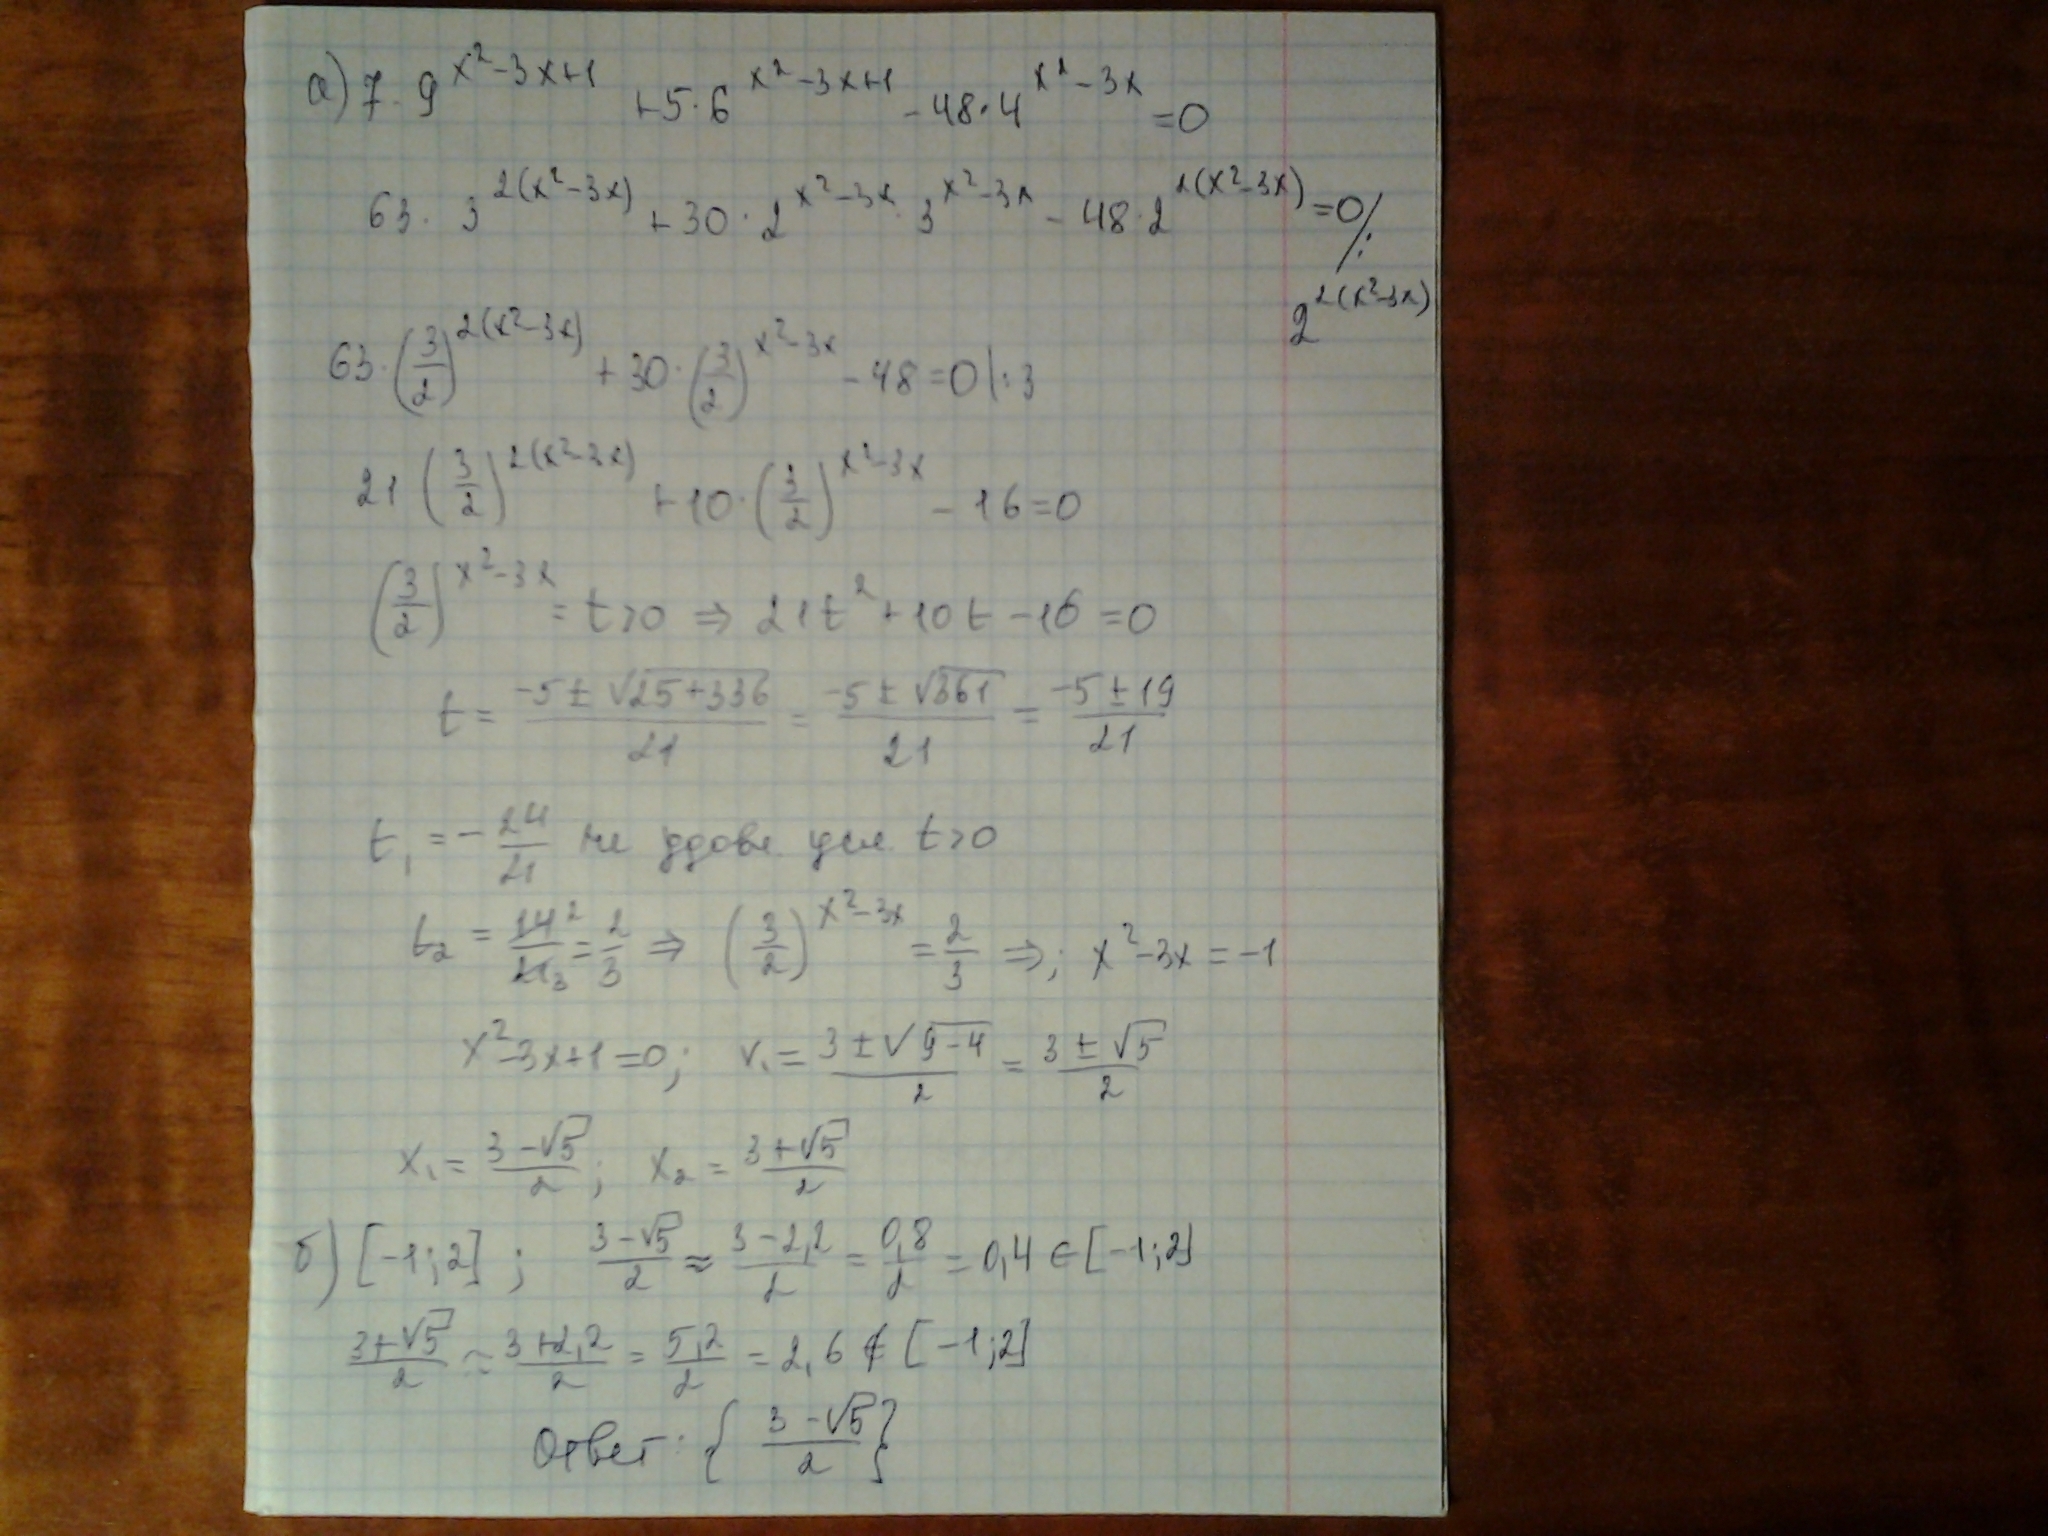 а) 7·9^(x²-3x+1) +5·6^(x²-3x+1) -48·4^(x²-3x) =0
63·3^(2(x²-3x)) +30·2^(x²-3x)·3^(x²-3x) -48·2^(2(x²-3x)) =0 /:
2^(2(x²-3x))
63·(3/2)^(2(x²-3x)) +30·(3/2)^(x²-3x) -48=0 |:3
21 (3/2)^(2(x²-3x)) +10·(3/2)^(x²-3x) -16=0
(3/2)^(x²-3x) = t>0 ⇒ 21t²+10t-16=0
t = (-5±√(25+336))/21 = (-5±√361)/21 = (-5±19)/21
t₁ = -24/21 не удовл. усл. t>0
t₂ = 14²/21₃ = 2/3 ⇒ (3/2)^(x²-3x) = 2/3 ⇒; x²-3x=-1
x²-3x+1=0; x₁ = (3±√(9-4))/2 = (3±√5)/2
x₁ = (3-√5)/2; x₂ = (3+√5)/2
б) [-1;2]; (3-√5)/2 ≈ (3-2,2)/2 = 0,8/2 = 0,4 ∈ [-1;2]
(3+√5)/2 ≈ (3+2,2)/2 = 5,2/2 = 2,6 ∉ [-1;2]
Ответ: {(3-√5)/2}